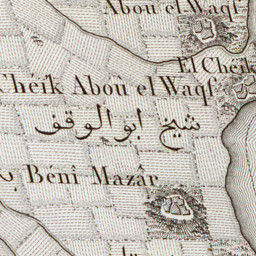 Abou el Waqf
El Cheïk
Cheïk Abou el Waqf
شيخ ابو الوقف
Béni Mazâr